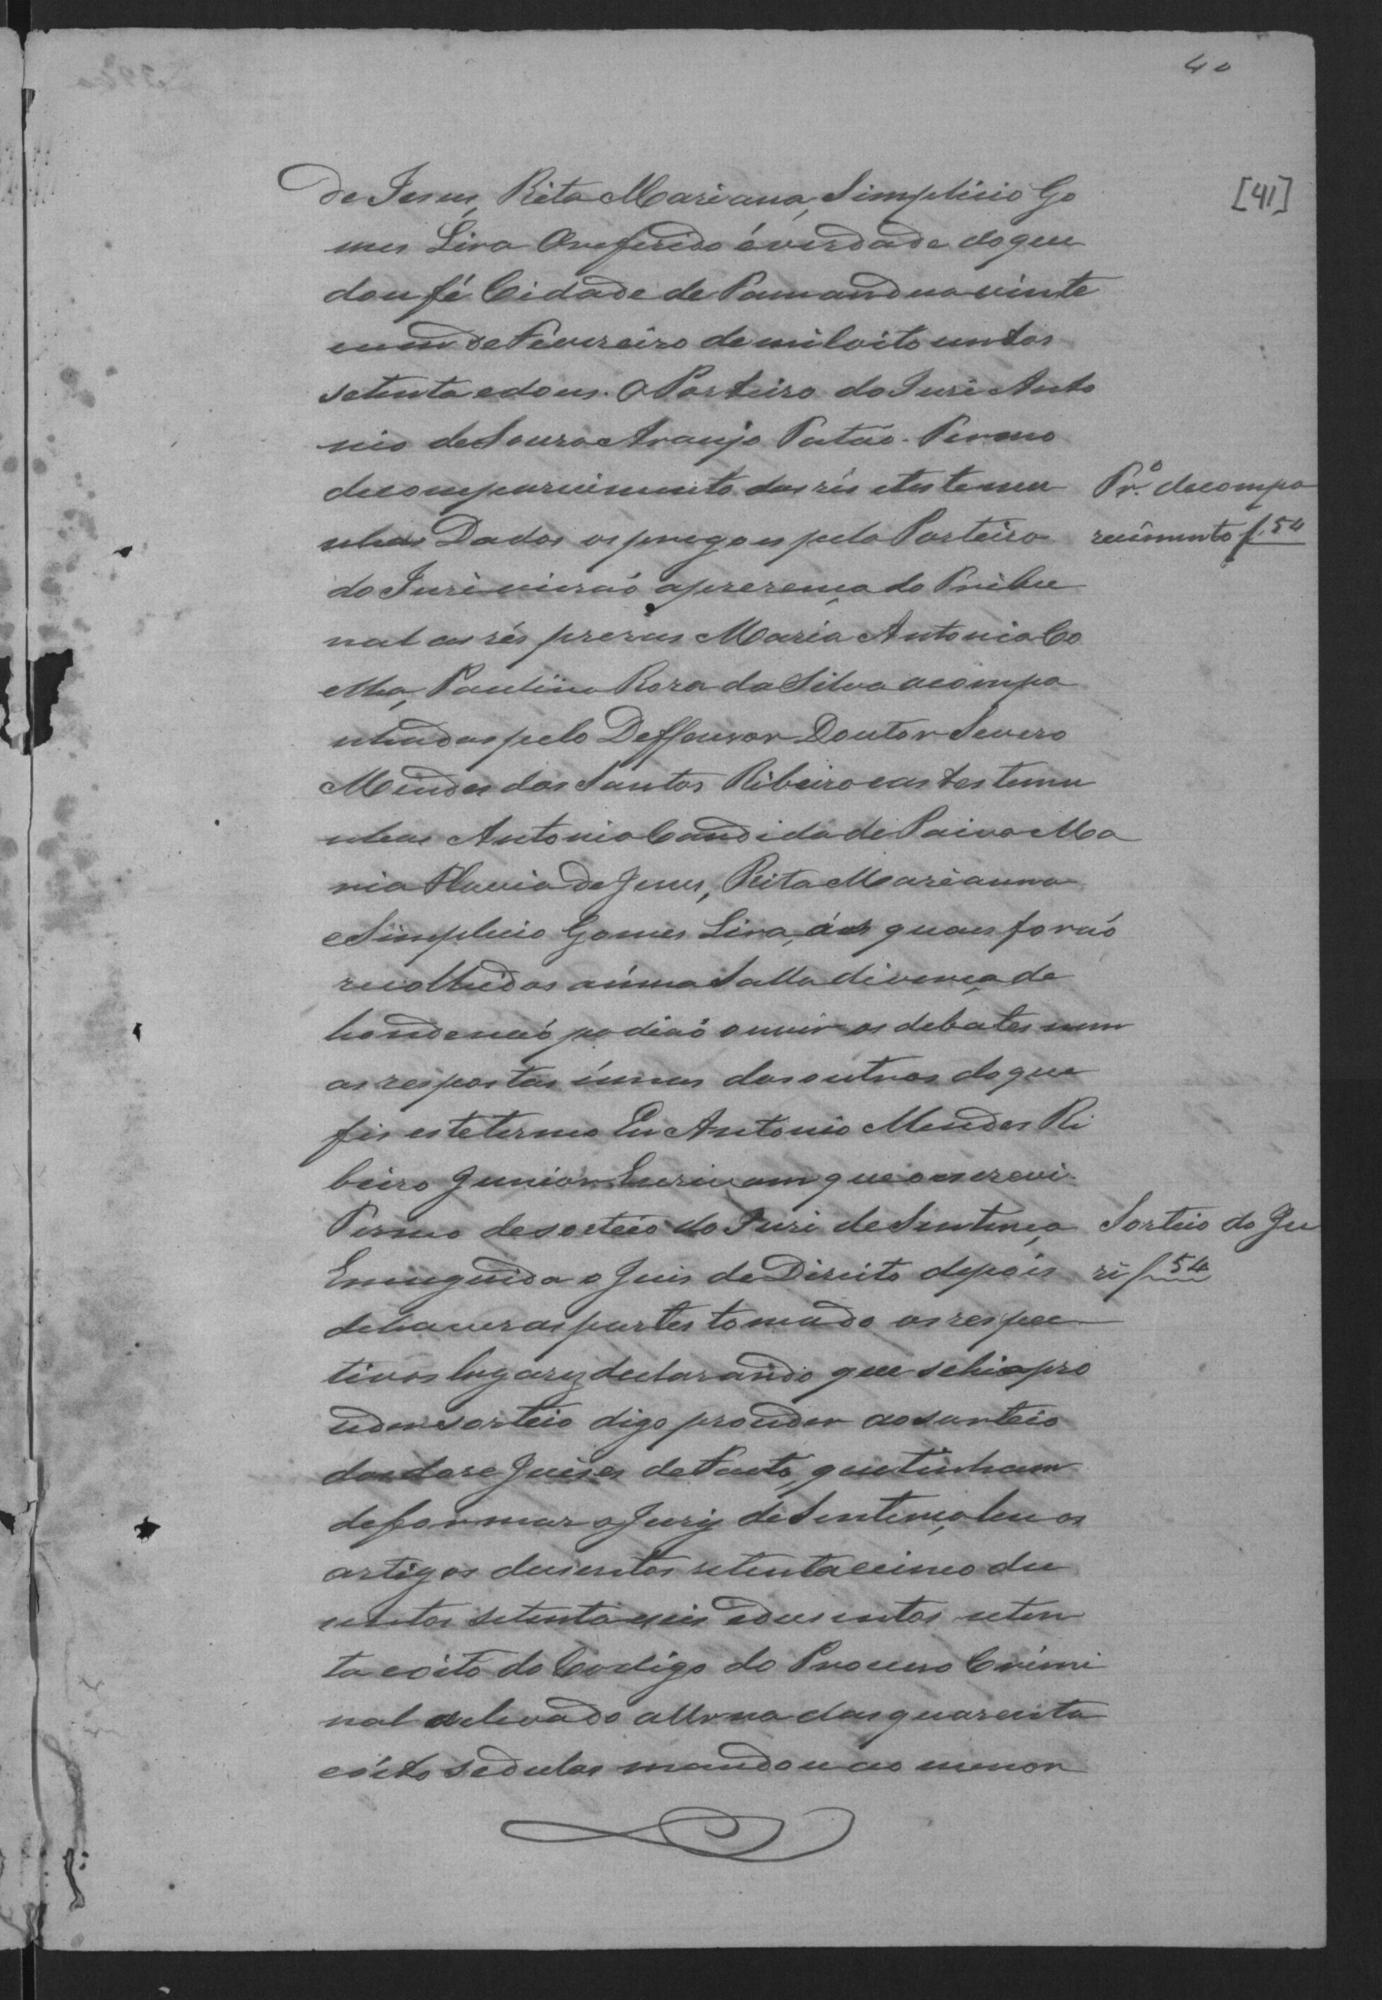 40
[41]
de Jesus, Rita Mariana, Simplicio Go
mes Lira O referido é verdade do que
dou fé Cidade de Pamandua vinte
e um de Fevereiro de mil oito centos
setenta e dous. O Porteiro do Juri Anto
nio de Souza Araujo Patáo. Termo
de comparecimento das rés e testemu
nhas Dados os pregoes pelo Porteiro
Pr.º de compa
recimento f. 54
do Juri viérão a prezença do Tribu
nal as rés prezas Maria Antonia Co
elha, Paulina Roza da Silva acompa
nhadas pelo Deffensor Doutor Severo
Mendes dos Santos Ribeiro e as testemu
nhas Antonio Candido de Paiva Ma
ria Flavia de Jesus, Rita Marianna
e Simplicio Gomes Lira, ás quaes forão
recolhidas a uma Salla diverça de
honde não podião ouvir os debates nem
as respostas úmas das outras do que
fis este termo Eu Antonio Mendes Ri
beiro Junior Escrivam que o escrevi.
Termo de sorteio do Juri de Sentença
Em seguida o Juis de Direito depois
Sorteio do Ju
ri f. 54
de haver as partes tomado os respec
tivos lugares declarando que se hia pro
ceder sorteio digo proceder ao sorteio
dos doze Juises de Facto, que tinham
de formar o Jury de Sentença, leu os
artigos dusentos setenta e cinco du
sentos setenta e seis e dusentos seten
ta e oito do Codigo do Processo Crimi
nal e levado a Urna das quarenta
e oito sedulas mandou ao menor